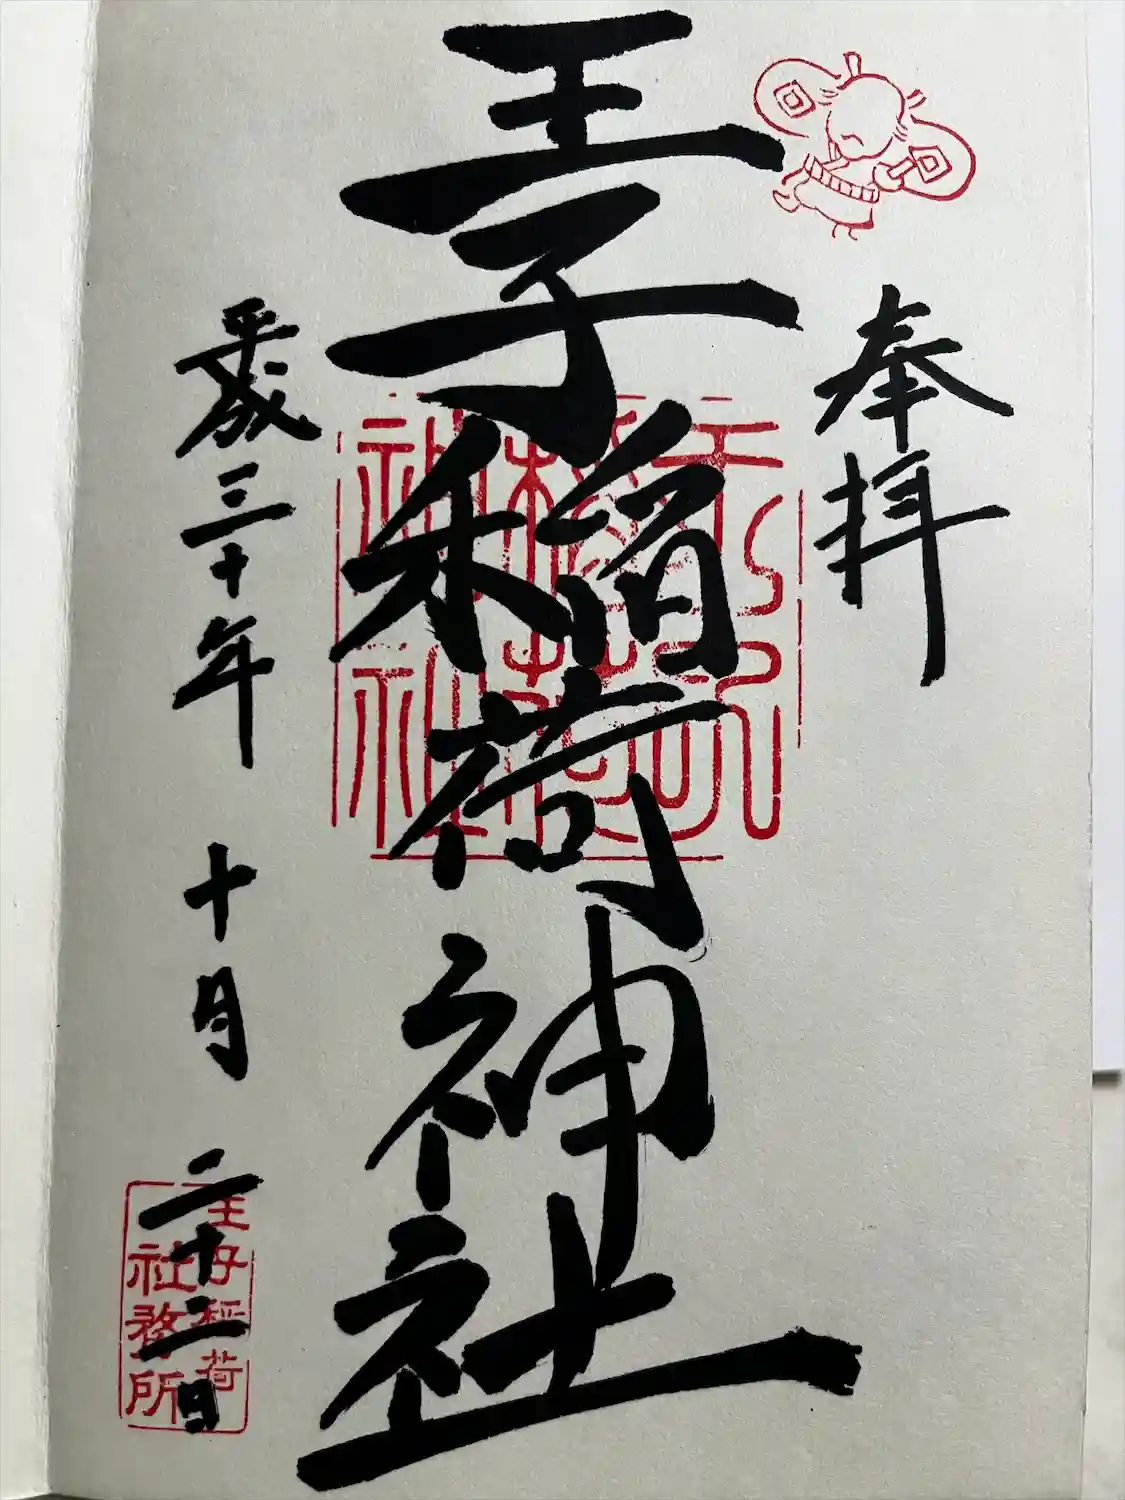 奉拝
王子稲荷神社
王子稲荷神社
平成三十年 十月 二十二日
王子稲荷
社務所